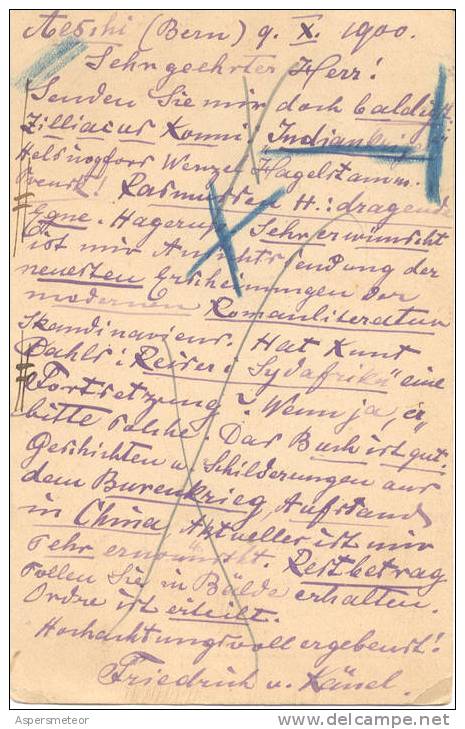 Aeschi (Bern) 9. X. 1900.
Sehr geehrter Herr!
Senden Sie mir doch baldigst:
Zilliacus Konni:
Helsingfors Wenzel Hagelstamm.
Rasmussen H.: dragende
Egne. Hagerup. Sehr erwünscht
ist mir Ansichtssendung der
neuesten Erscheinungen der
modernen Romanliteratur
Skandinaviens. Hat Kunt
Dahls: Reiser i Sydafrika" eine
Fortsetzung? Wenn ja, er-
bitte solche. Das Buch ist gut.
Geschichten u. Schilderungen aus
dem Burenkrieg, Aufstand
in China, Aktuelles ist mir
sehr erwünscht. Restbetrag
sollen Sie in Bälde erhalten.
Ordre ist erteilt.
Hochachtungsvoll ergebenst!
Friedrich v. Känel.
Aspersmeteor
delcampe.net